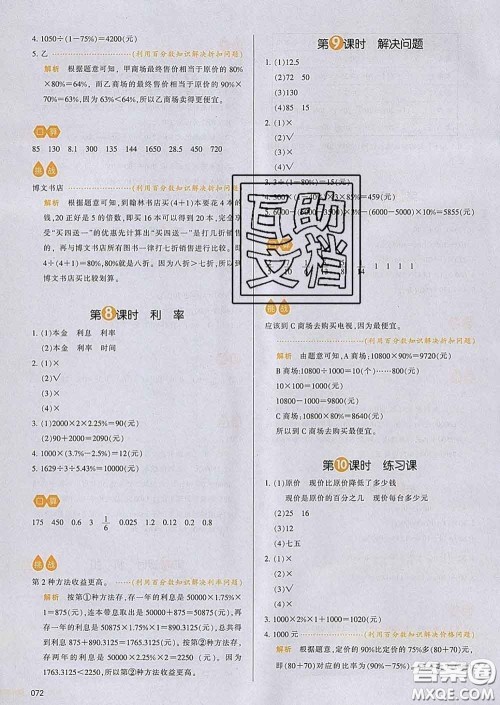 4. 1050÷(1-75%)=4200(元)
5. 乙 (利用百分数知识解决折扣问题)
解析 根据题意可知,甲商场最终售价相当于原价的80%
×80%=64%,而乙商场最终售价相当于原价的90%
×70%=63%,63%<64%,所以乙商场卖得更便宜。
口算
85 130 8.1 300 135 144 1650 450 720
挑战
博文书店 (利用百分数知识解决折扣问题)
解析 根据题意可知,到翰林书店买(4+1)本要花4本
的钱,20正好是5的倍数,即买16本可以得到20本,
享受“买四送一”的优惠先计算出“买四送一”是打几折销
售的,再与博文书店所有图书一律打七折销售进行比较。
4÷(4+1)=80%,80%就是八折。因为八折>七折,所以到
博文书店买比较划算。
第8课时 利 率
1. (1)本金 利息 利率
(2)本金 利率 时间
2. (1)×
(2)√
(3)×
(4)×
3. (1)2000×2×2.25%=90(元)
(2)90+2000=2090(元)
4. 1000×(3.7%-2.5%)=12(元)
5. 1629÷3+5.43%=10000(元)
口算
175 450 0.6 3 1/6 0.025 1.2 0.2 0.44
挑战
第2种方法收益更高。 (利用百分数知识解决利率问题)
解析 按第①种方法存,存一年的利息是50000×1.75%×
1=875(元),连本带息取出是50000+875=50875(元),再存
一年的利息是50875×1.75%×1=890.3125(元),共得利息
875+890.3125=1765.3125(元)。按第②种方法存,
存两年的利息是50000×2.25%×2=2250(元)。因为
1763.3125<2250,所以按第②种方法收益更高。
072
第9课时 解决问题
1. (1)12.5
(2)72 50
(3)130
(4)85 15
2. (1)×
(2)√
(3)×
应该到C商场去购买电视,因为C商场最便宜。
(利用百分数知识解决折扣问题)
解析 由题意可知,A商场:10800×90%=9720(元)
B商场:10800÷1000=10(个)……800(元)
10×100=1000(元)
10800-1000=9800(元)
C商场:10800×80%=8640(元)
所以到C商场去购买最便宜。
第10课时 练习课
1. (1)原价 现价比原价降低了多少钱
现价是原价的百分之几 现价每台多少元
(2)16
(3)15
(4)七五
2. (1)×
(2)×
(3)√
3. 1000×2%×1+1000=1020(元)
4. 1000元 (利用百分数知识解决价格问题)
解析 根据题意可知,定价的90%比定价的75%多(80+70)元,
即(80+70)元对应的比率为(90%-75%),所以
互助文档
答案圈
MXQE.COM